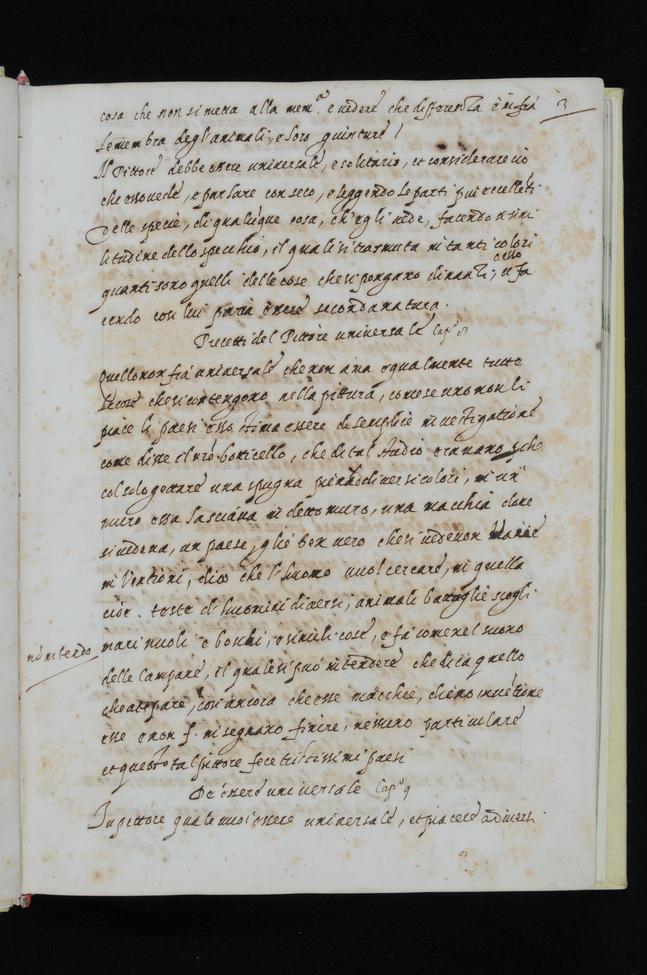 cosa che non si metta alla mem.a e vedere che differenza è in frà
3
le membra degl'animali, e loro giunture /
Il Pittore debbe essere universale, e solitario, et considerare ciò
che esso vede, e parlare con seco, e leggendo le parti piu eccellēti
delle specie, di qualūque cosa, ch'egli vede, facendo a simi
litudine dello specchio, il quale si trasmuta in tanti colori
quanti sono quelli delle cose che si pongano dinanti, e fa
esso
cendo così lui parrà essere seconda natura.
Precetti del Pittore universale Cap.o 8
Quello non fia universale che non ama egualmente tutte
le cose che si contengono nella pittura, come se uno non li
piace li paesi esso stima essere di semplice investigatione
come disse il nro botticello, che di tal studio era vano, pche
col solo gettare una spugna piena di diversi colori, in un
muro essa lasciava in detto muro, una macchia dove
si vedeva, un paese, gl'è ben vero che si vedenon varie
inventioni, dico che l'huomo vuol cercare, in quella
cioè. teste d'huomini diversi, animali battaglie scogli.
mari nuoli e boschi, e simili cose, e fa come nel suono
nō intendo
delle Campane, il quale si può intendere che dica quello
che a te pare, così ancora che esse macchie, dieno invētione
esse non t'insegnano finire, nessuno particulare
et questo tal pittore fece tristissimi paesi
De essere universale Cap.o 9
Tu pittore quale vuoi essere universale, et piacere a diversi.